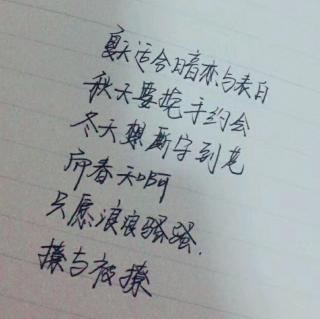 夏天适合暗恋与表白
秋天要挽手约会
冬天想厮守到老
而春天啊
只愿浪浪骚骚.
撩与被撩